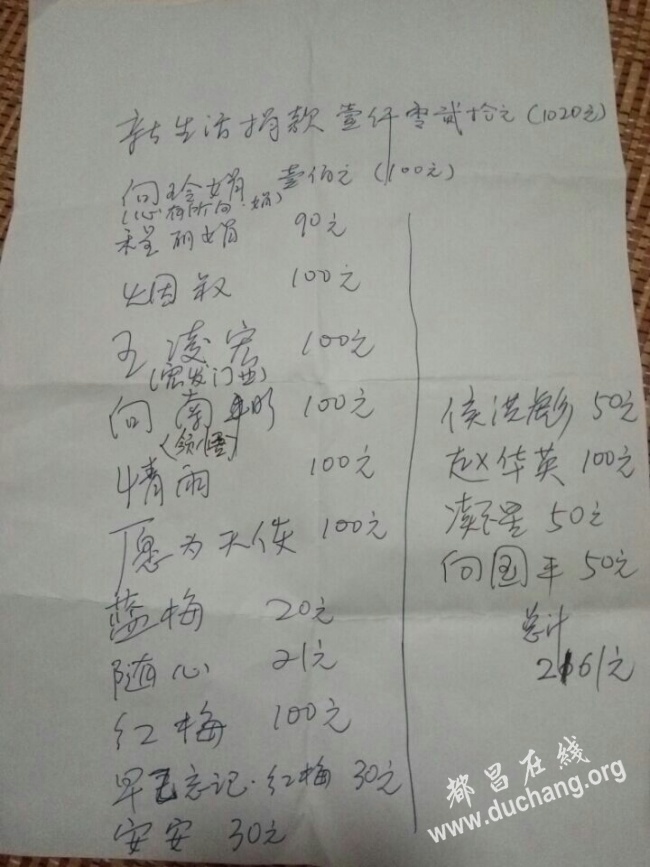 新生活捐款 壹仟零贰拾元 (1020元)
向玲娟 壹佰元 (100元)
(心有所向·娟)
程丽娟 90元
烟叙 100元
王凌宏 100元
(宏发门业)
向南 100元
(领悟)
情雨 100元
愿为天使 100元
蓝梅 20元
随心 21元
红梅 100元
早已忘记·红梅 30元
安安 30元
侯洪彪 50元
赵华英 100元
满星 50元
向国平 50元
总计
2161元
都昌在线
www.duchang.org